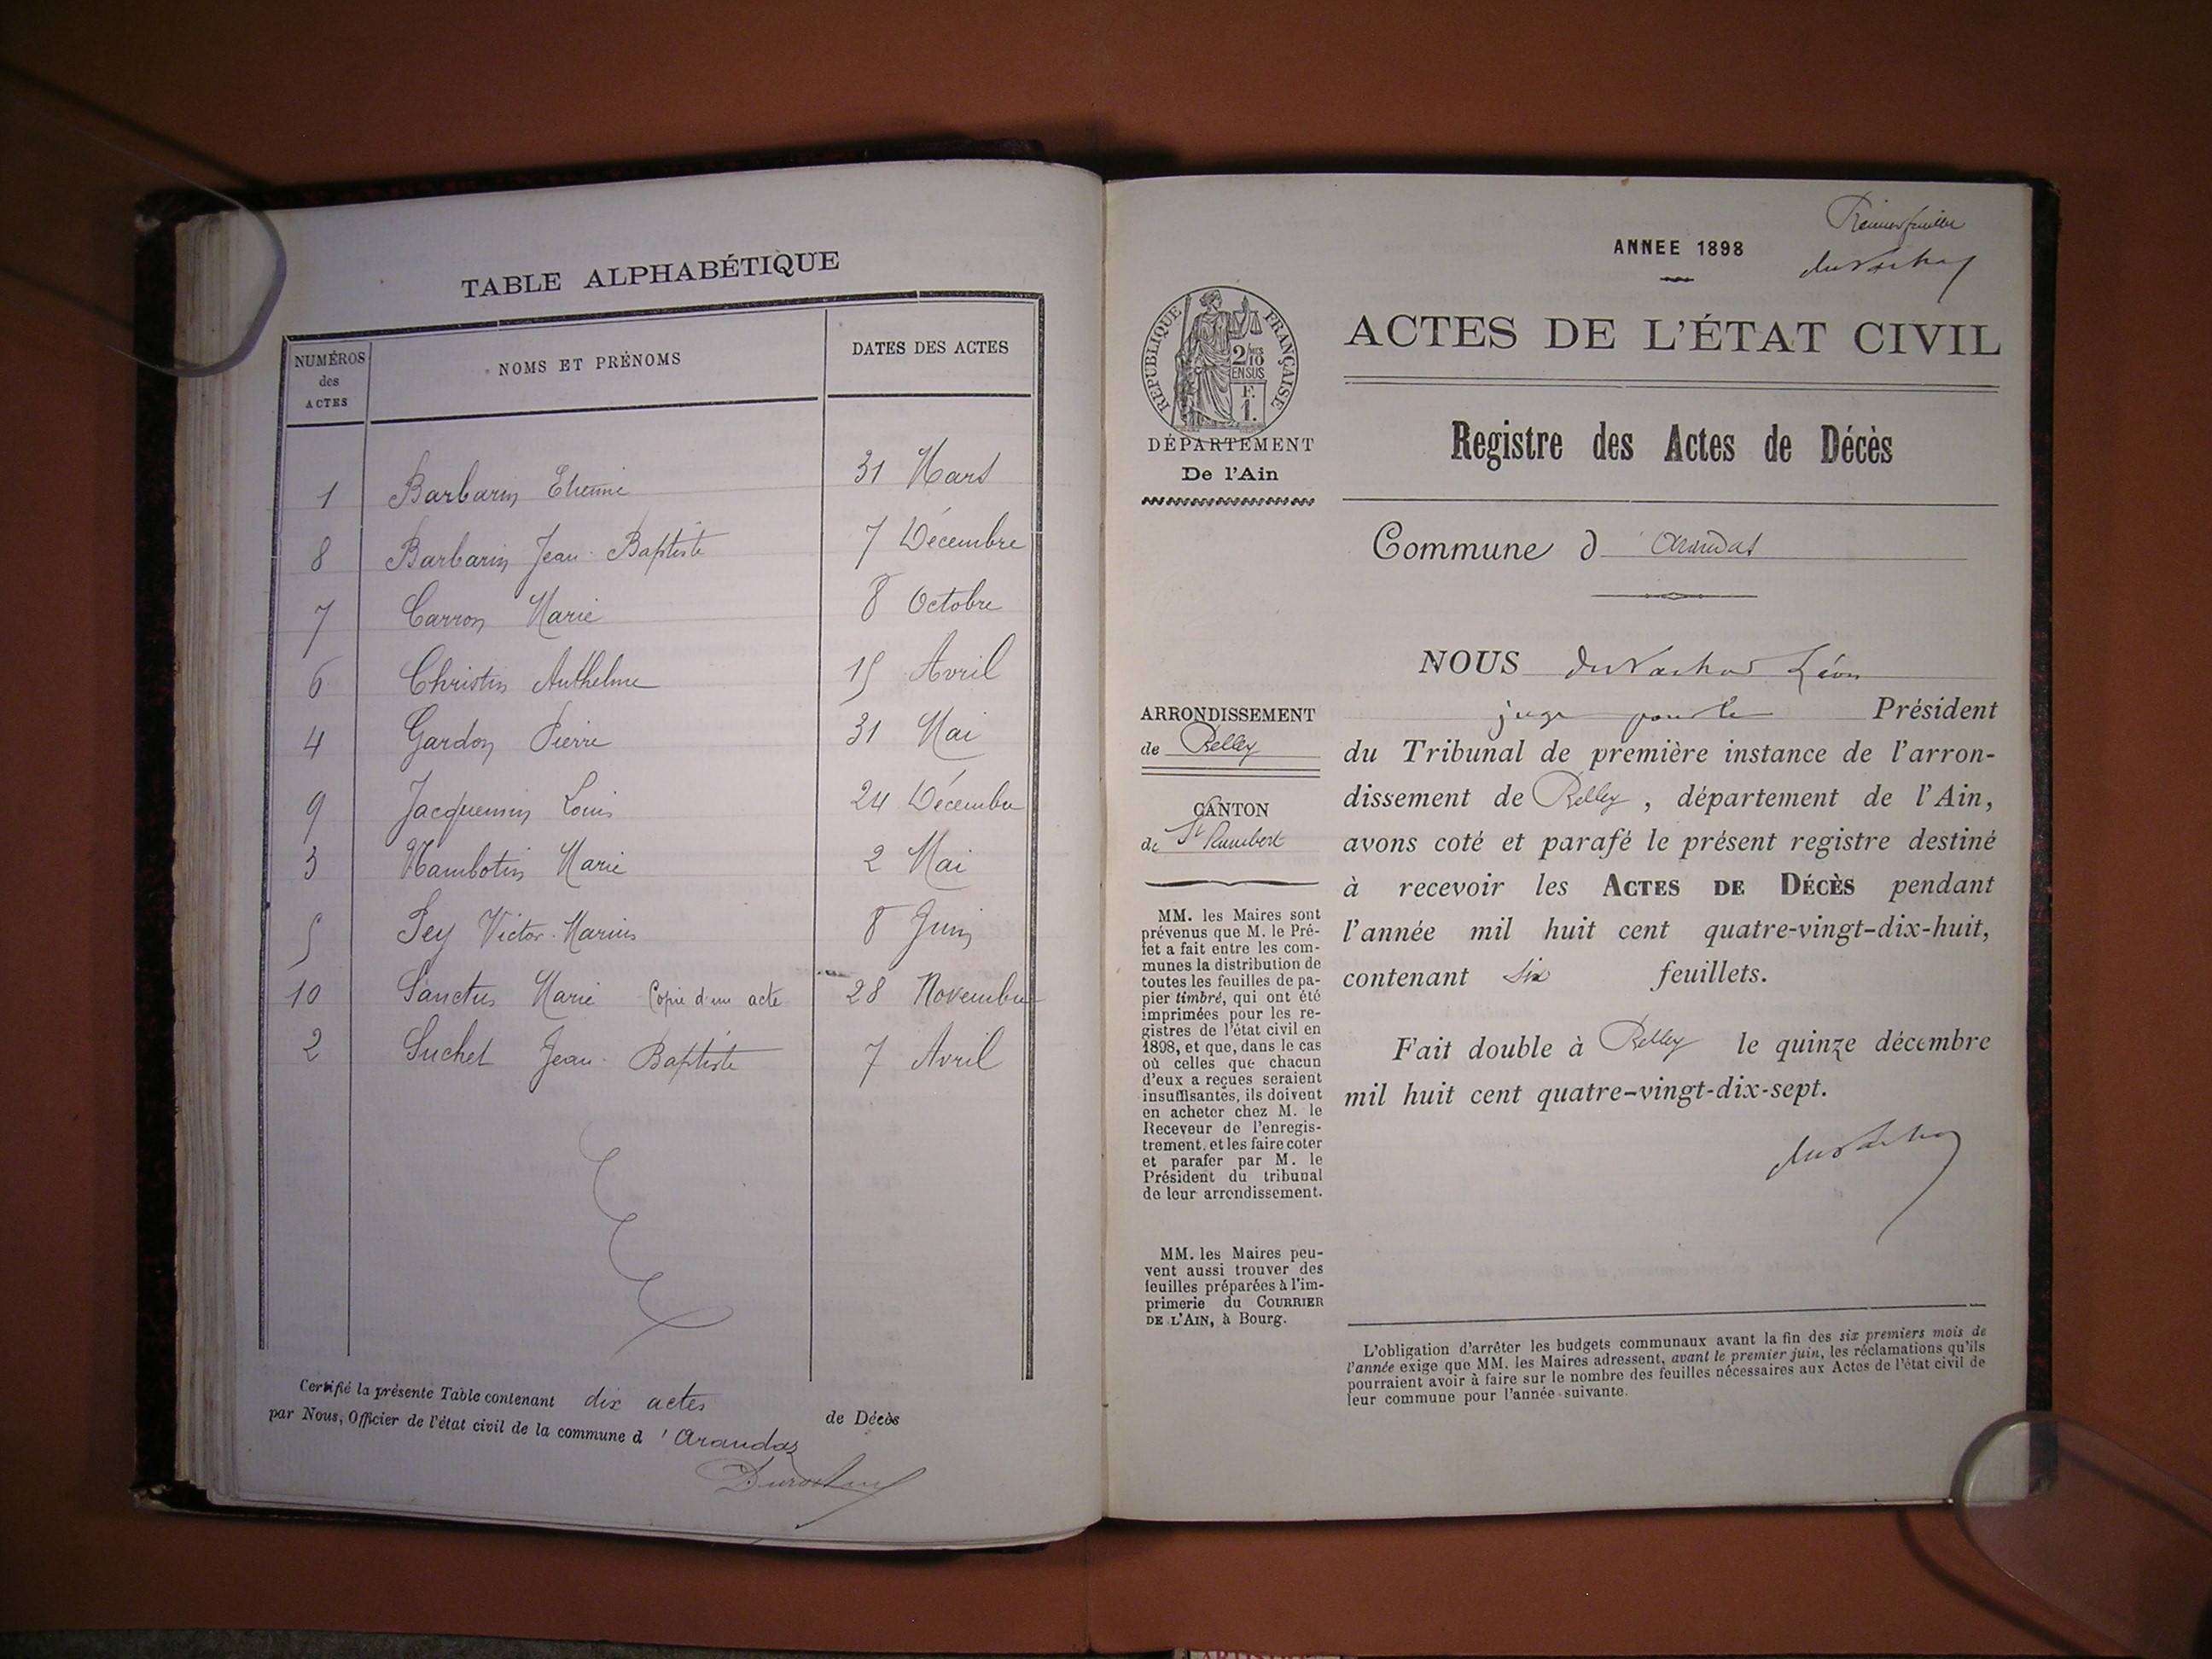 TABLE ALPHABÉTIQUE
NUMÉROS des ACTES NOMS ET PRÉNOMS DATES DES ACTES
1 Barbarin Etienne 31 Mars
8 Barbarin Jean-Baptiste 7 Décembre
7 Carron Marie 8 Octobre
6 Christin Anthelme 15 Avril
4 Gardon Pierre 31 Mai
9 Jacquemin Louis 24 Décembre
3 Mambotin Marie 2 Mai
5 Pey Victor-Marius 8 Juin
10 Sanctus Marie Copie d'un acte 28 Novembre
2 Suchet Jean-Baptiste 7 Avril
Certifié la présente Table contenant dix actes de Décès
par Nous, Officier de l'état civil de la commune d'Arandas
ANNEE 1898
RÉPUBLIQUE FRANÇAISE
2/10 MES
EN SUS
F.
1.
DÉPARTEMENT
De l'Ain
ARRONDISSEMENT
de Belley
CANTON
de St Rambert
MM. les Maires sont
prévenus que M. le Pré-
fet a fait entre les com-
munes la distribution de
toutes les feuilles de pa-
pier timbré, qui ont été
imprimées pour les re-
gistres de l'état civil en
1898, et que, dans le cas
où celles que chacun
d'eux a reçues seraient
insuffisantes, ils doivent
en acheter chez M. le
Receveur de l'enregis-
trement, et les faire coter
et parafer par M. le
Président du tribunal
de leur arrondissement.
MM. les Maires peu-
vent aussi trouver des
feuilles préparées à l'im-
primerie du COURRIER
DE L'AIN, à Bourg.
ACTES DE L'ÉTAT CIVIL
Registre des Actes de Décès
Commune d Arandas
NOUS Léon
juge pour le Président
du Tribunal de première instance de l'arron-
dissement de Belley, département de l'Ain,
avons coté et parafé le présent registre destiné
à recevoir les ACTES DE DÉCÈS pendant
l'année mil huit cent quatre-vingt-dix-huit,
contenant six feuillets.
Fait double à Belley le quinze décembre
mil huit cent quatre-vingt-dix-sept.
L'obligation d'arrêter les budgets communaux avant la fin des six premiers mois de
l'année exige que MM. les Maires adressent, avant le premier juin, les réclamations qu'ils
pourraient avoir à faire sur le nombre des feuilles nécessaires aux Actes de l'état civil de
leur commune pour l'année suivante.